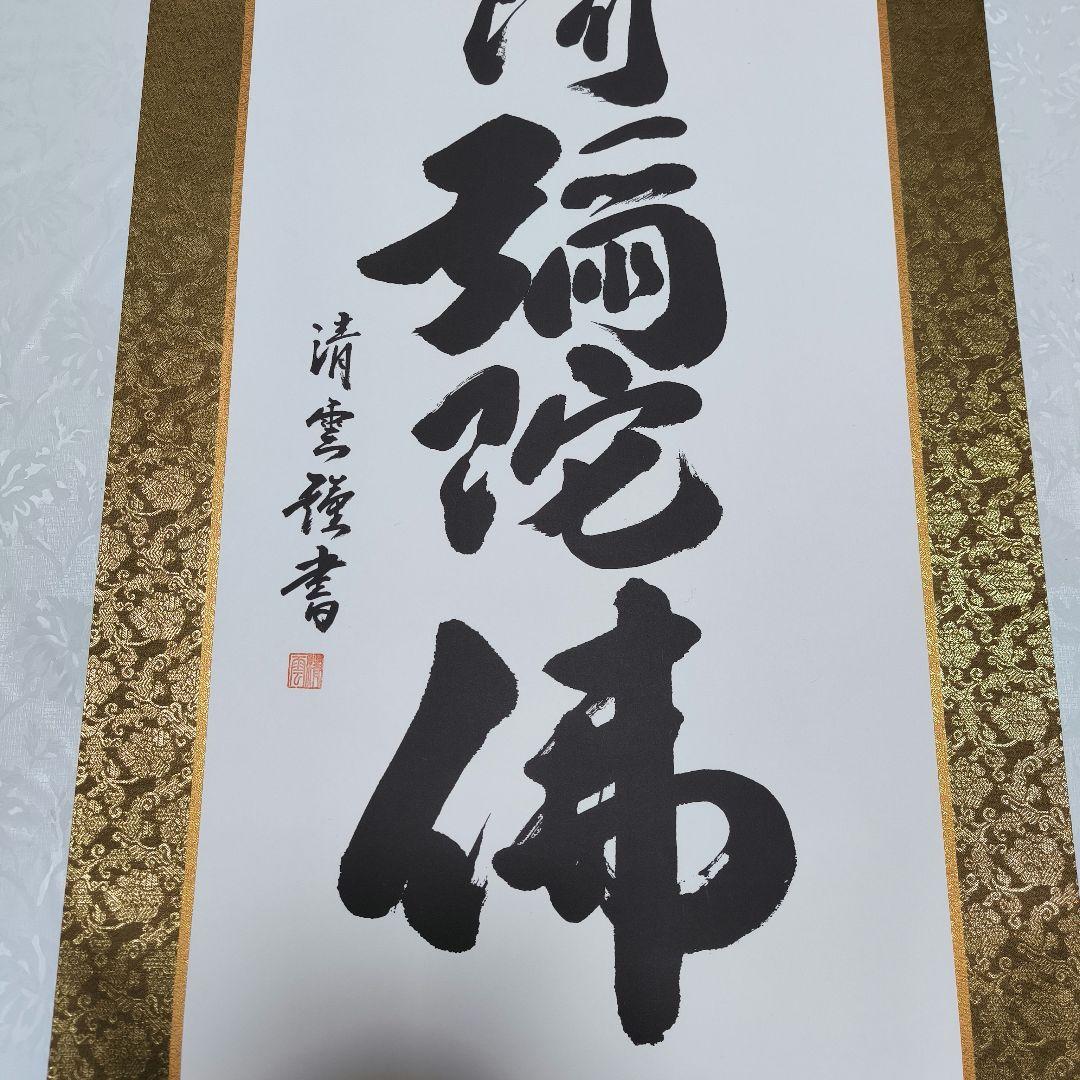 阿彌陀佛
清雲謹書
清雲